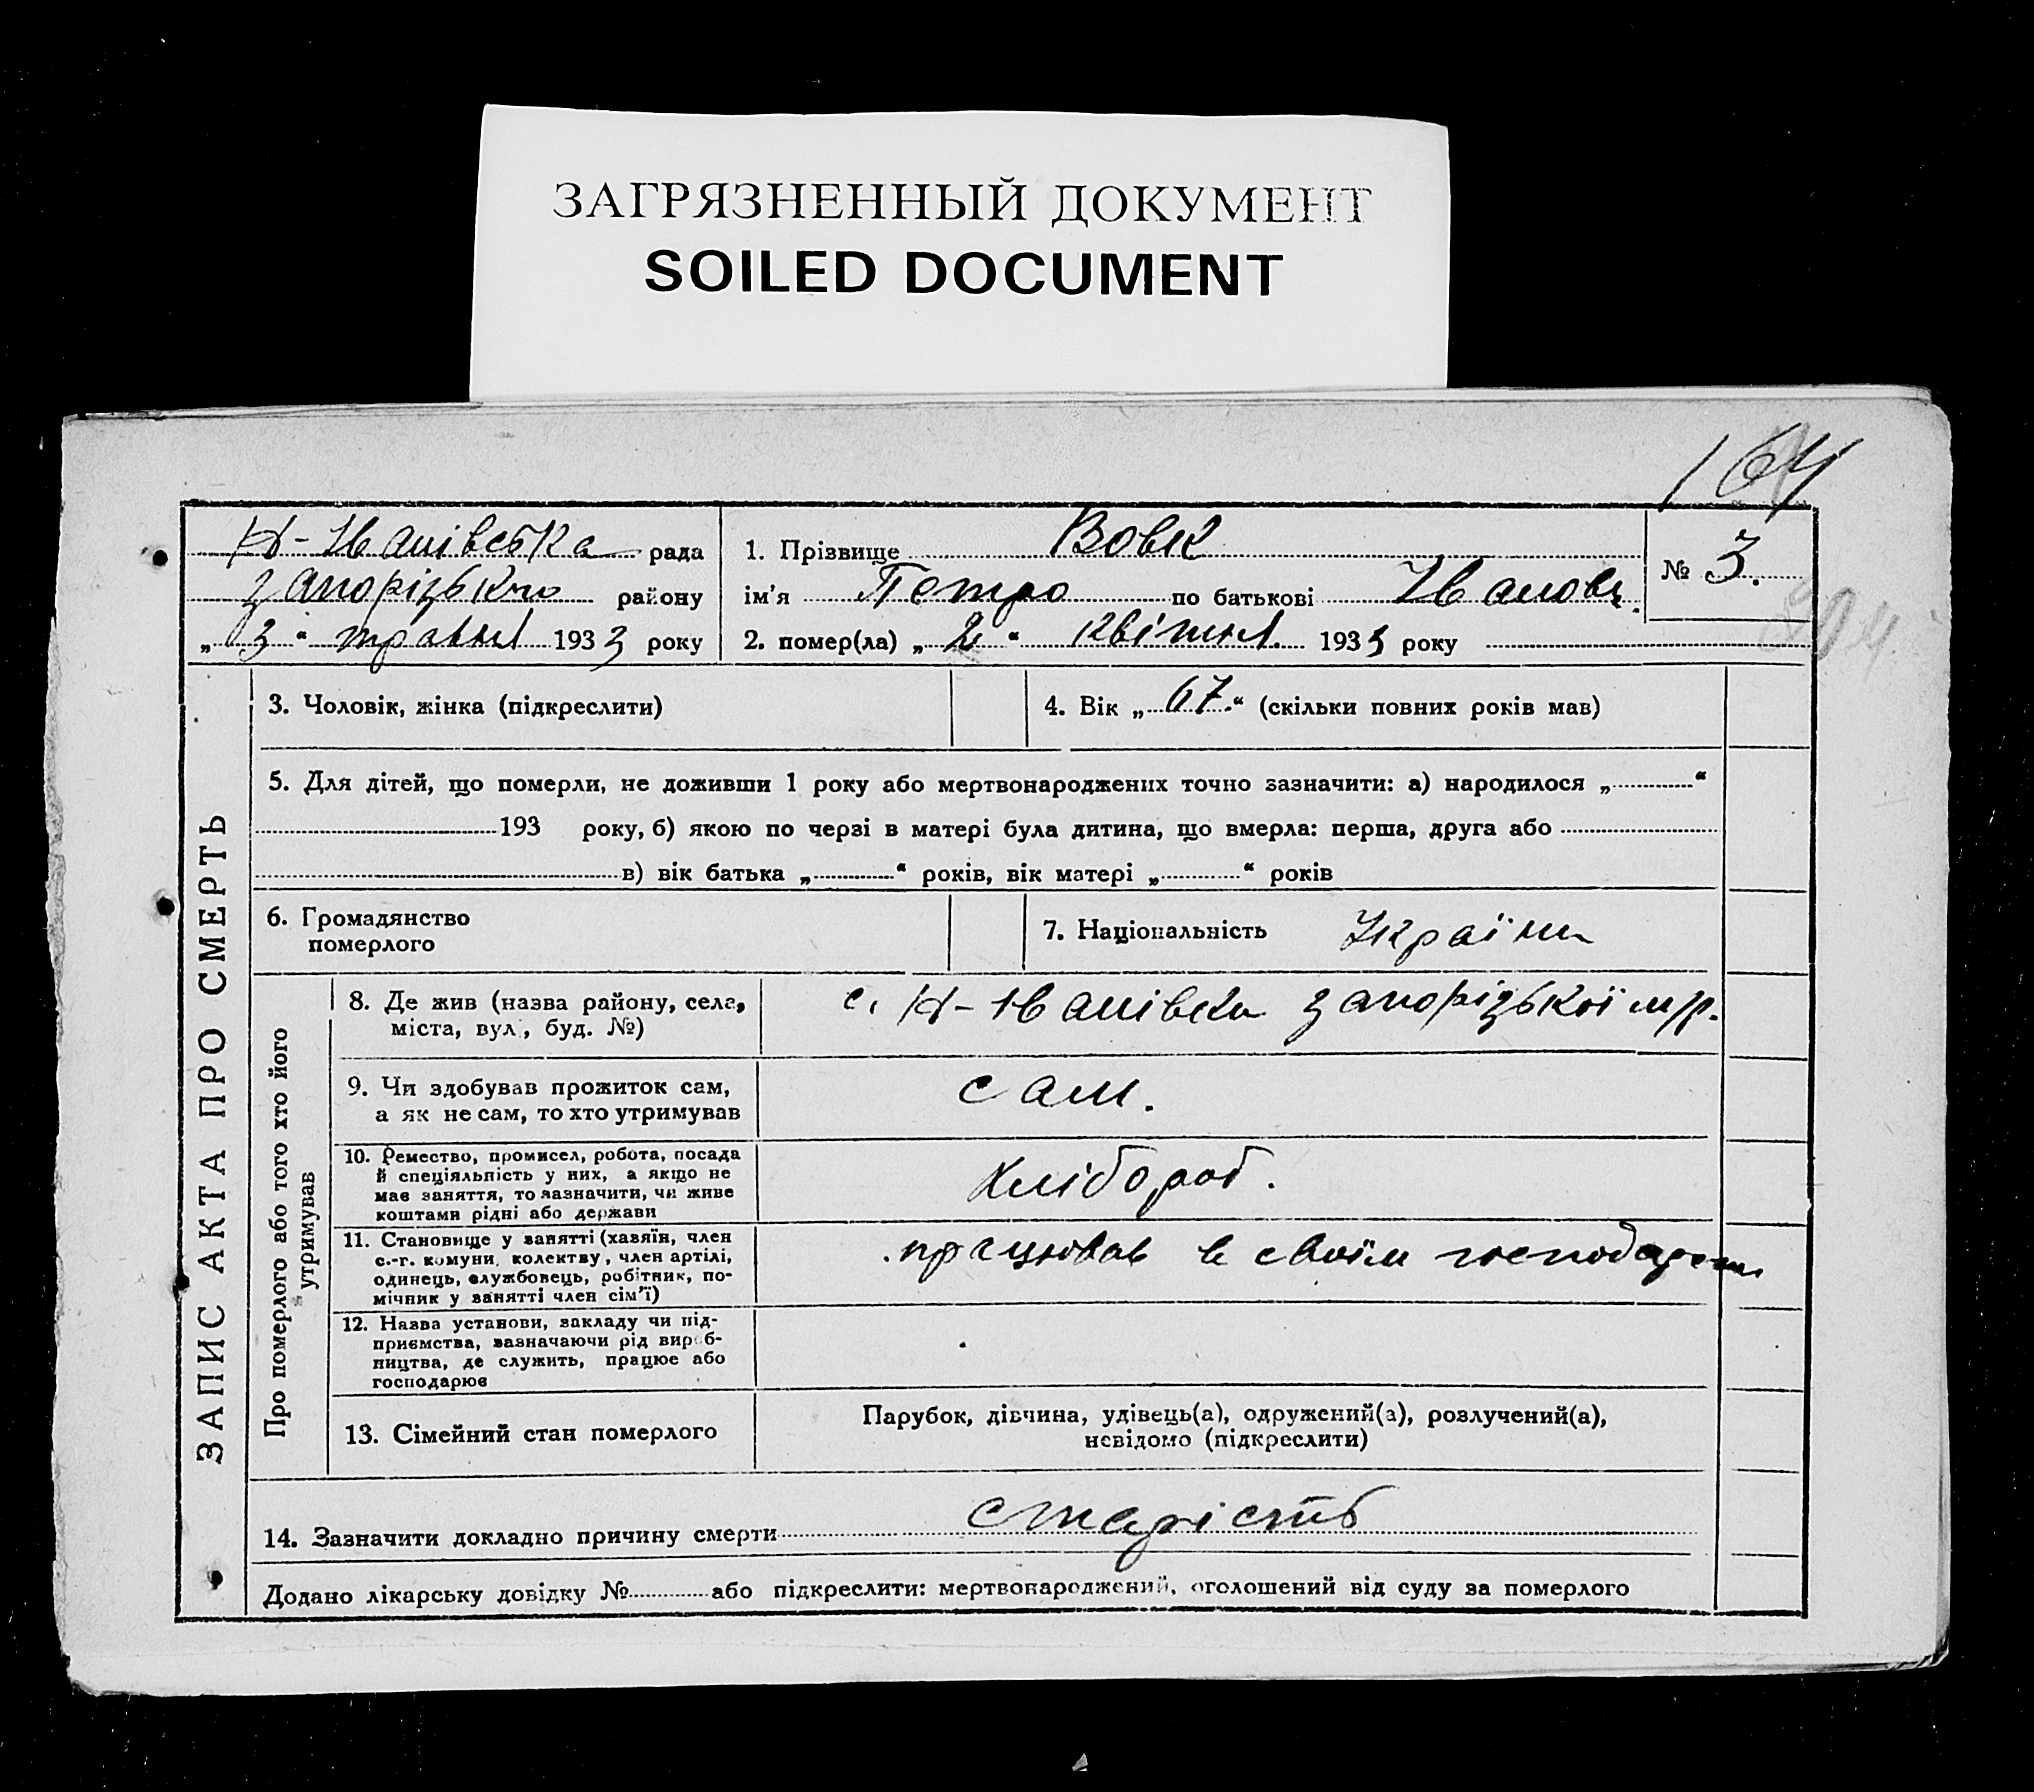 ЗАГРЯЗНЕННЫЙ ДОКУМЕНТ
SOILED DOCUMENT
164
Н-Іванівська рада
Запорізького району
„ 3 “ травня 1933 року
1. Прізвище Вовк
ім'я Петро по батькові Іванов.
2. помер(ла) „ 2 “ квітня 1933 року
№ 3.
ЗАПИС АКТА ПРО СМЕРТЬ
3. Чоловік, жінка (підкреслити)
4. Вік „ 67 “ (скільки повних років мав)
5. Для дітей, що померли, не доживши 1 року або мертвонароджених точно зазначити: а) народилося „ “
193 року, б) якою по черзі в матері була дитина, що вмерла: перша, друга або
в) вік батька „ “ років, вік матері „ “ років
6. Громадянство
померлого
7. Національність Україн
Про померлого або того хто його
утримував
8. Де жив (назва району, села,
міста, вул., буд. №)
с. Н-Іванівка Запорізької м/р.
9. Чи здобував прожиток сам,
а як не сам, то хто утримував
сам.
10. Ремество, промисел, робота, посада
й спеціяльність у них, а якщо не
має заняття, то зазначити, чи живе
коштами рідні або держави
Хлібороб.
11. Становище у занятті (хазяїн, член
с.-г. комуни, колектву, член артілі,
одинець, службовець, робітник, по-
мічник у занятті член сім'ї)
працював в своїм господарстві
12. Назва установи, закладу чи під-
приємства, зазначаючи рід вироб-
ництва, де служить, працює або
господарює
13. Сімейний стан померлого
Парубок, дівчина, удівець(а), одружений(а), розлучений(а),
невідомо (підкреслити)
14. Зазначити докладно причину смерти старість
Додано лікарську довідку № або підкреслити: мертвонароджений, оголошений від суду за померлого